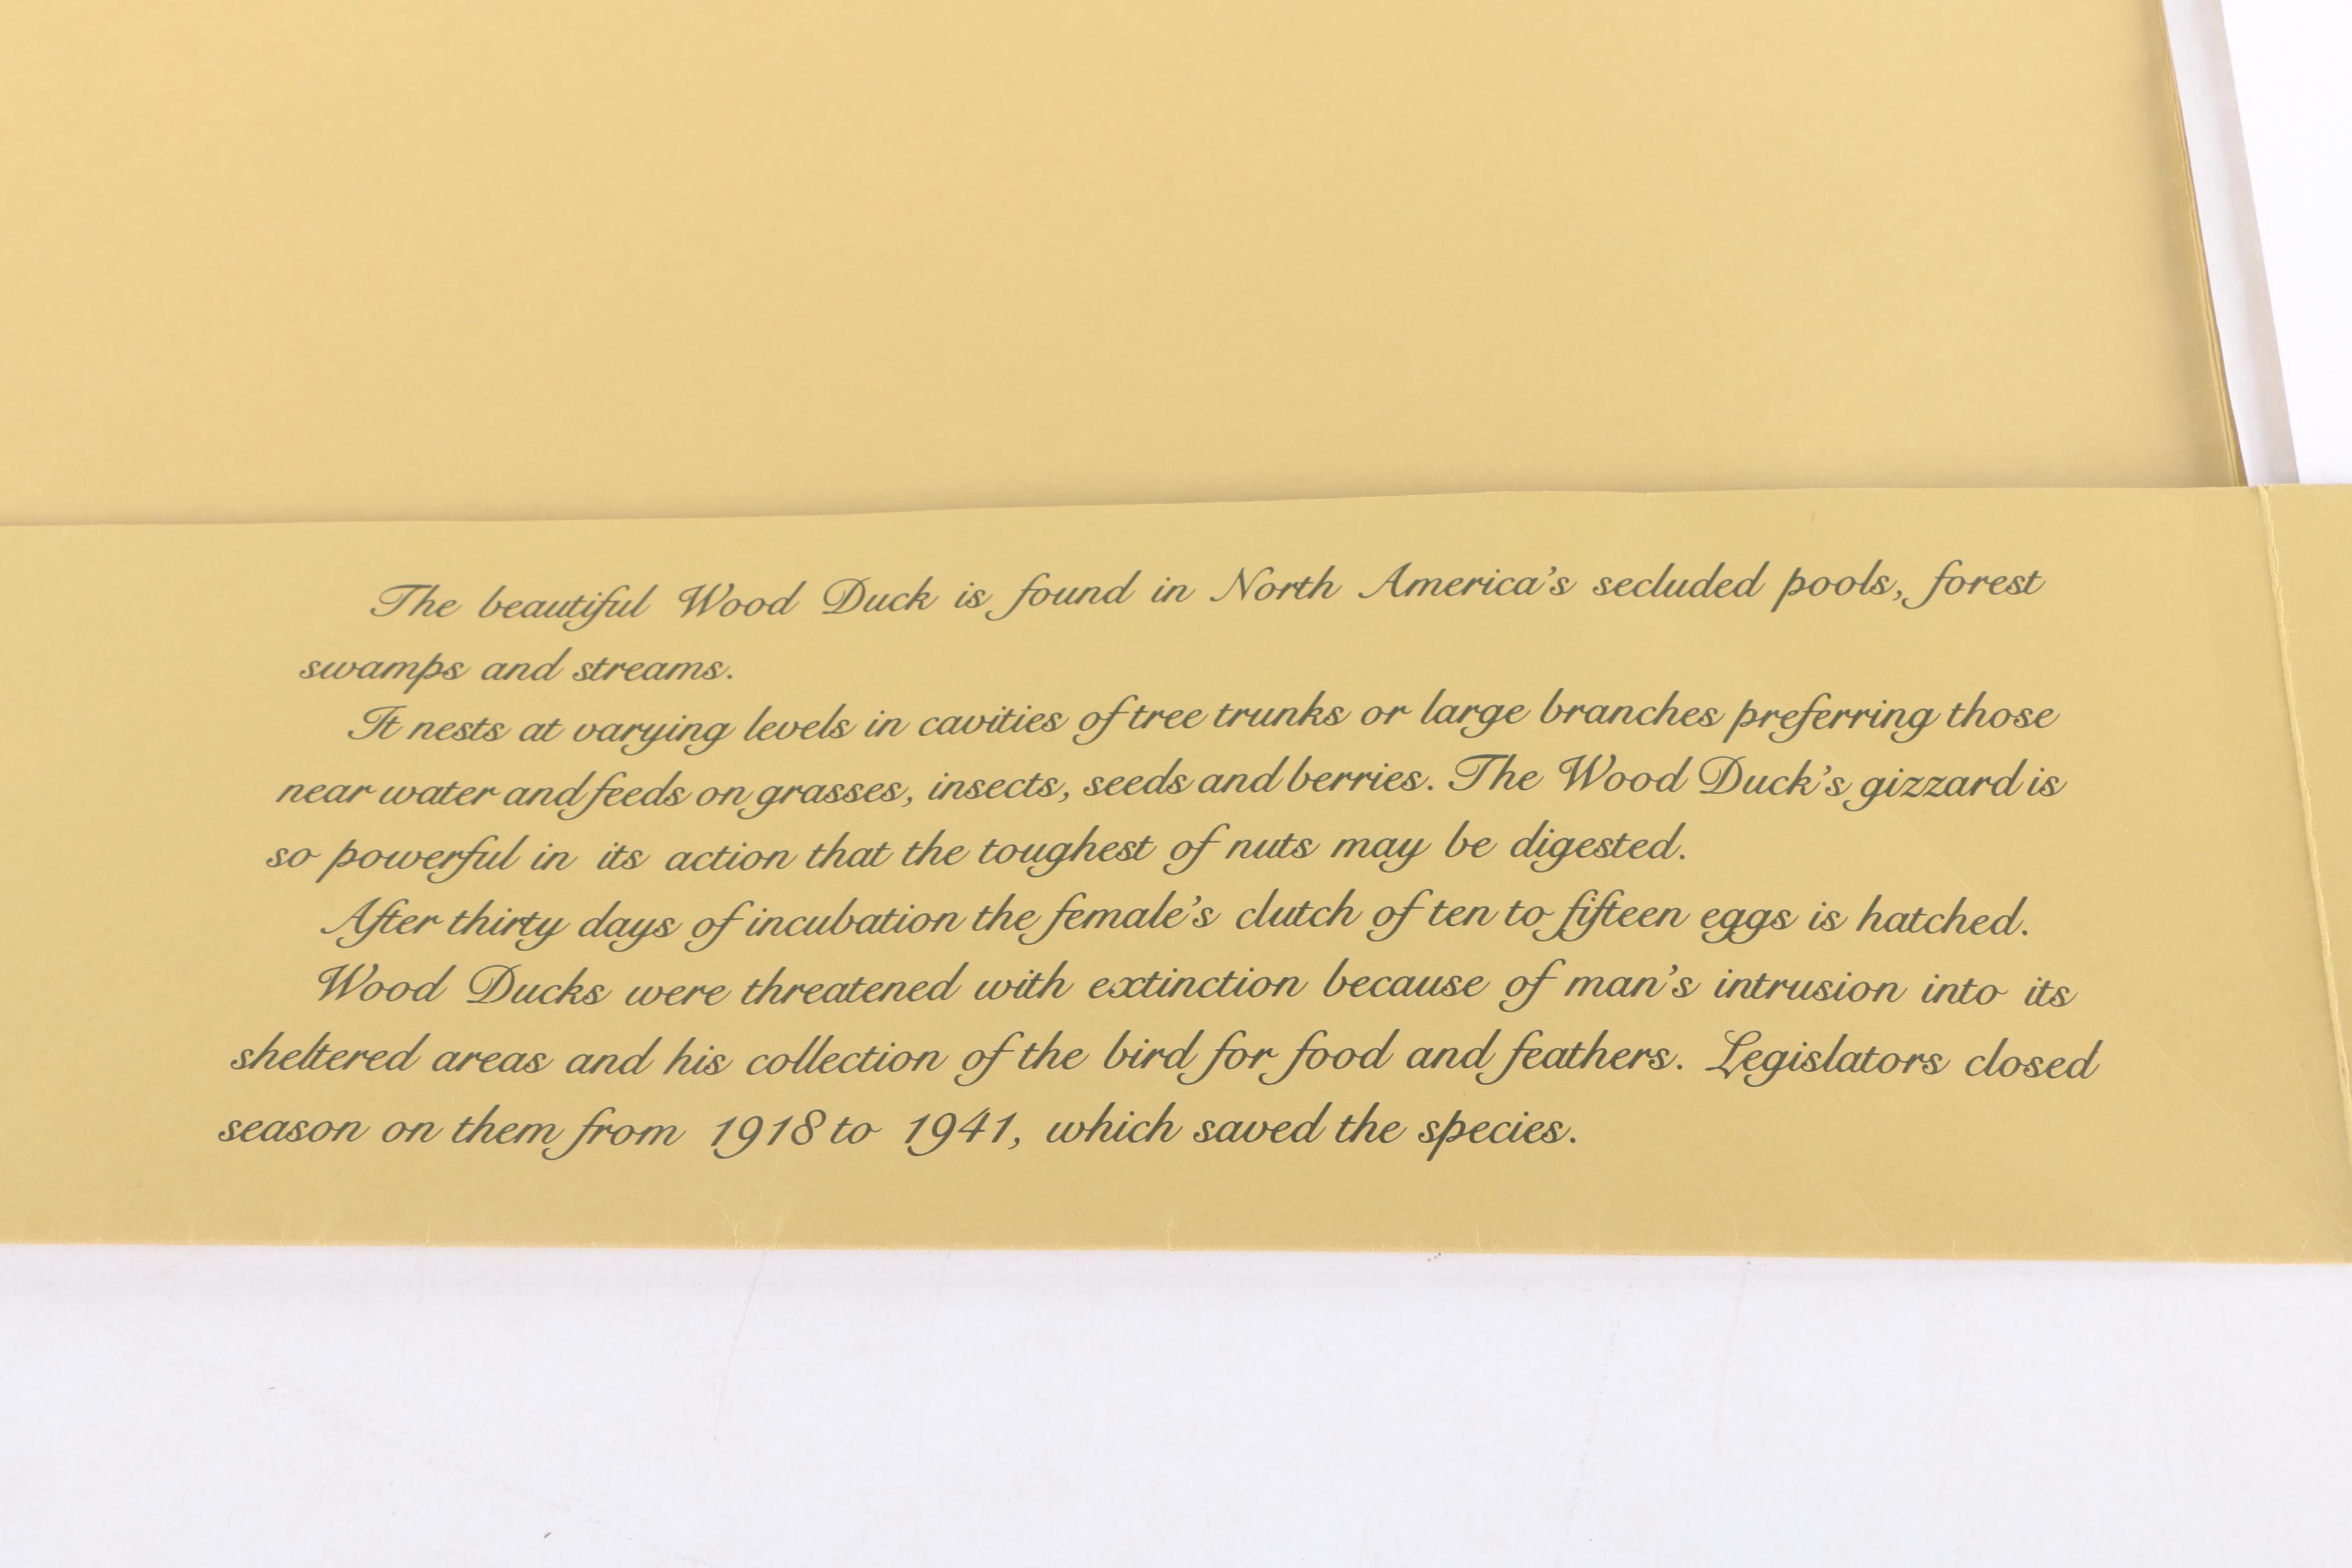 The beautiful Wood Duck is found in North America's secluded pools, forest
swamps and streams.
It nests at varying levels in cavities of tree trunks or large branches preferring those
near water and feeds on grasses, insects, seeds and berries. The Wood Duck's gizzard is
so powerful in its action that the toughest of nuts may be digested.
After thirty days of incubation the female's clutch of ten to fifteen eggs is hatched.
Wood Ducks were threatened with extinction because of man's intrusion into its
sheltered areas and his collection of the bird for food and feathers. Legislators closed
season on them from 1918 to 1941, which saved the species.